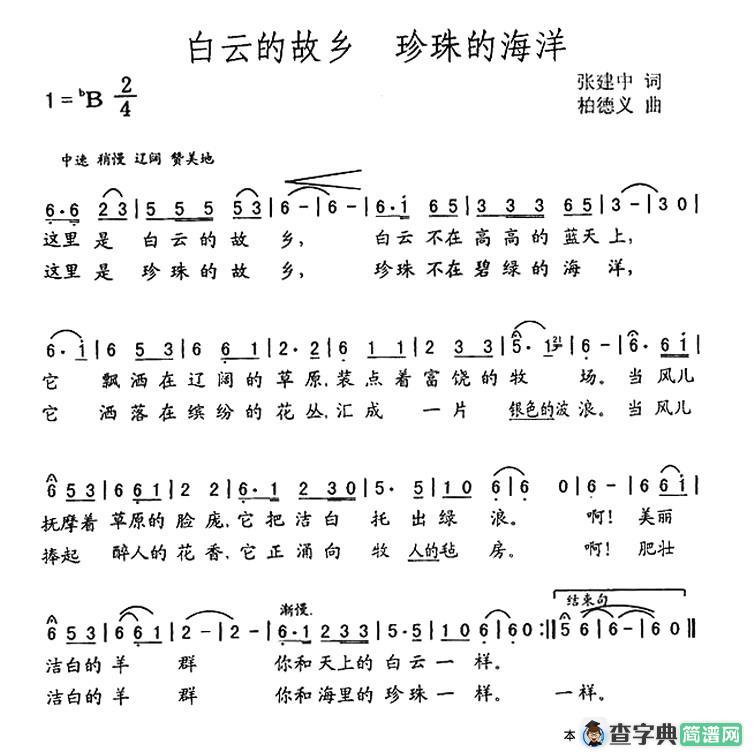 白云的故乡 珍珠的海洋
1=ᵇB 2/4
张建中 词
柏德义 曲
中速 稍慢 辽阔 赞美地
6·6 2 3 | 5 5 5 5 3 | 6 - | 6 - | 6·i 6 5 | 3 3 3 6 5 | 3 - | 3 0 |
这里是 白云的故 乡, 白云不在高高的蓝天上,
这里是 珍珠的故 乡, 珍珠不在碧绿的海 洋,
6· i | 6 5 3 | 6 6 1 | 2· 2 | 6 1 1 | 2 3 3 | 5· 1 21 | 6 - | 6· 6 i |
它 飘洒在辽阔的草原,装点着富饶的牧 场。当风儿
它 洒落在缤纷的花丛,汇成 一片 银色的波浪。当风儿
6 5 3 | 6 6 1 | 2 2 | 6·1 2 3 | 5· 5 | 1 0 6 | 6 0 | 6 - | 6 6 i |
抚摩着 草原的脸庞,它把洁白 托出绿 浪。 啊!美丽
捧起 醉人的花香,它正涌向 牧 人的毡 房。 啊!肥壮
渐慢.
结束句
6 5 3 | 6 6 1 | 2 - | 2 - | 6·1 2 3 3 | 5·5 | 1 0 6 | 6 0 :‖ 5 6 | 6 - | 6 0 ‖
洁白的羊 群 你和天上的白云一样。
洁白的羊 群 你和海里的珍珠一样。 一样。
本
查字典简谱网